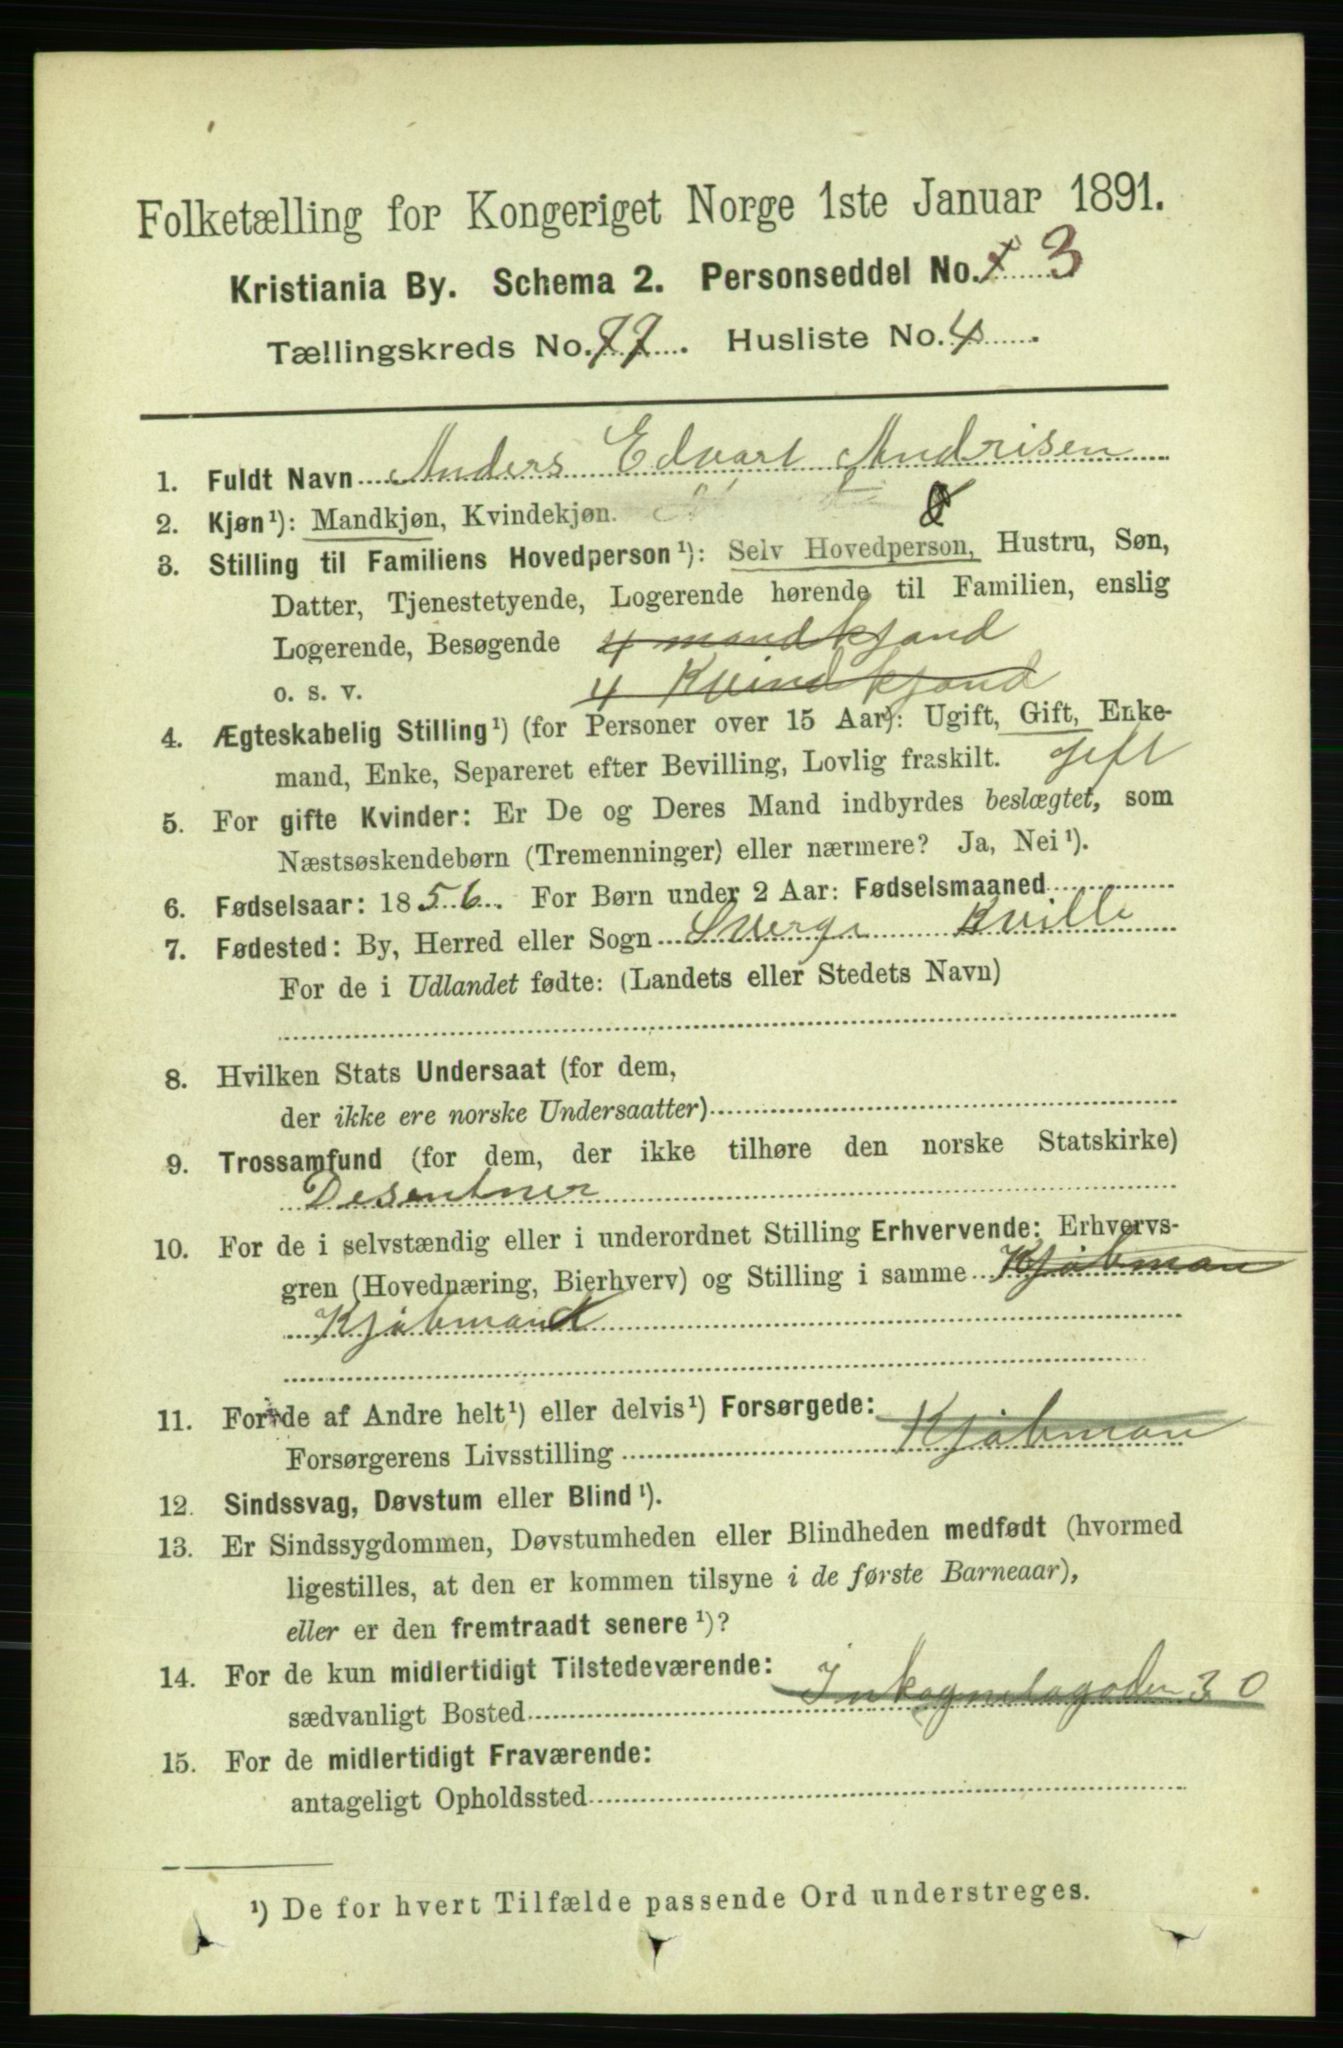 Folketælling for Kongeriget Norge 1ste Januar 1891.
Kristiania By. Schema 2. Personseddel No. 3
Tællingskreds No. 77. Husliste No. 4.
1. Fuldt Navn Anders Edvart Andrisen
2. Kjøn¹): Mandkjøn, Kvindekjøn.
3. Stilling til Familiens Hovedperson¹): Selv Hovedperson, Hustru, Søn,
Datter, Tjenestetyende, Logerende hørende til Familien, enslig
Logerende, Besøgende 4 mandkjønd
o. s. v. 4 Kvindkjønd
4. Ægteskabelig Stilling¹) (for Personer over 15 Aar): Ugift, Gift, Enke-
mand, Enke, Separeret efter Bevilling, Lovlig fraskilt. gift
5. For gifte Kvinder: Er De og Deres Mand indbyrdes beslægtet, som
Næstsøskendebørn (Tremenninger) eller nærmere? Ja, Nei¹).
6. Fødselsaar: 1856. For Børn under 2 Aar: Fødselsmaaned
7. Fødested: By, Herred eller Sogn Sverge Kville
For de i Udlandet fødte: (Landets eller Stedets Navn)
8. Hvilken Stats Undersaat (for dem,
der ikke ere norske Undersaatter)
9. Trossamfund (for dem, der ikke tilhøre den norske Statskirke)
Desentner
10. For de i selvstændig eller i underordnet Stilling Erhvervende: Erhvervs-
gren (Hovednæring, Bierhverv) og Stilling i samme Kjøbman
Kjøbmand
11. For de af Andre helt¹) eller delvis¹) Forsørgede:
Forsørgerens Livsstilling Kjøbman
12. Sindssvag, Døvstum eller Blind¹).
13. Er Sindssygdommen, Døvstumheden eller Blindheden medfødt (hvormed
ligestilles, at den er kommen tilsyne i de første Barneaar),
eller er den fremtraadt senere¹)?
14. For de kun midlertidigt Tilstedeværende:
sædvanligt Bosted Inkognetogaden 30
15. For de midlertidigt Fraværende:
antageligt Opholdssted
¹) De for hvert Tilfælde passende Ord understreges.